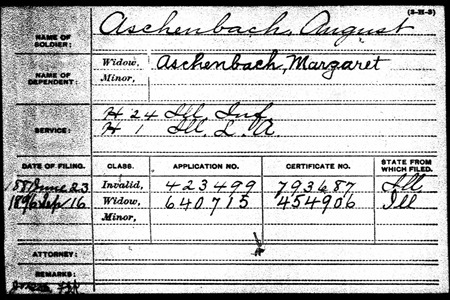 (3-III-3)
NAME OF SOLDIER: Aschenbach, August
NAME OF DEPENDENT: Widow, Aschenbach, Margaret
Minor,
SERVICE: H 24 Ill. Inf.
H 1 Ill. L. A
DATE OF FILING. CLASS. APPLICATION NO. CERTIFICATE NO. STATE FROM WHICH FILED.
June 23 Invalid, 423499 793687 Ill
1896 Sep 16 Widow, 640715 454906 Ill
Minor,
ATTORNEY:
REMARKS: